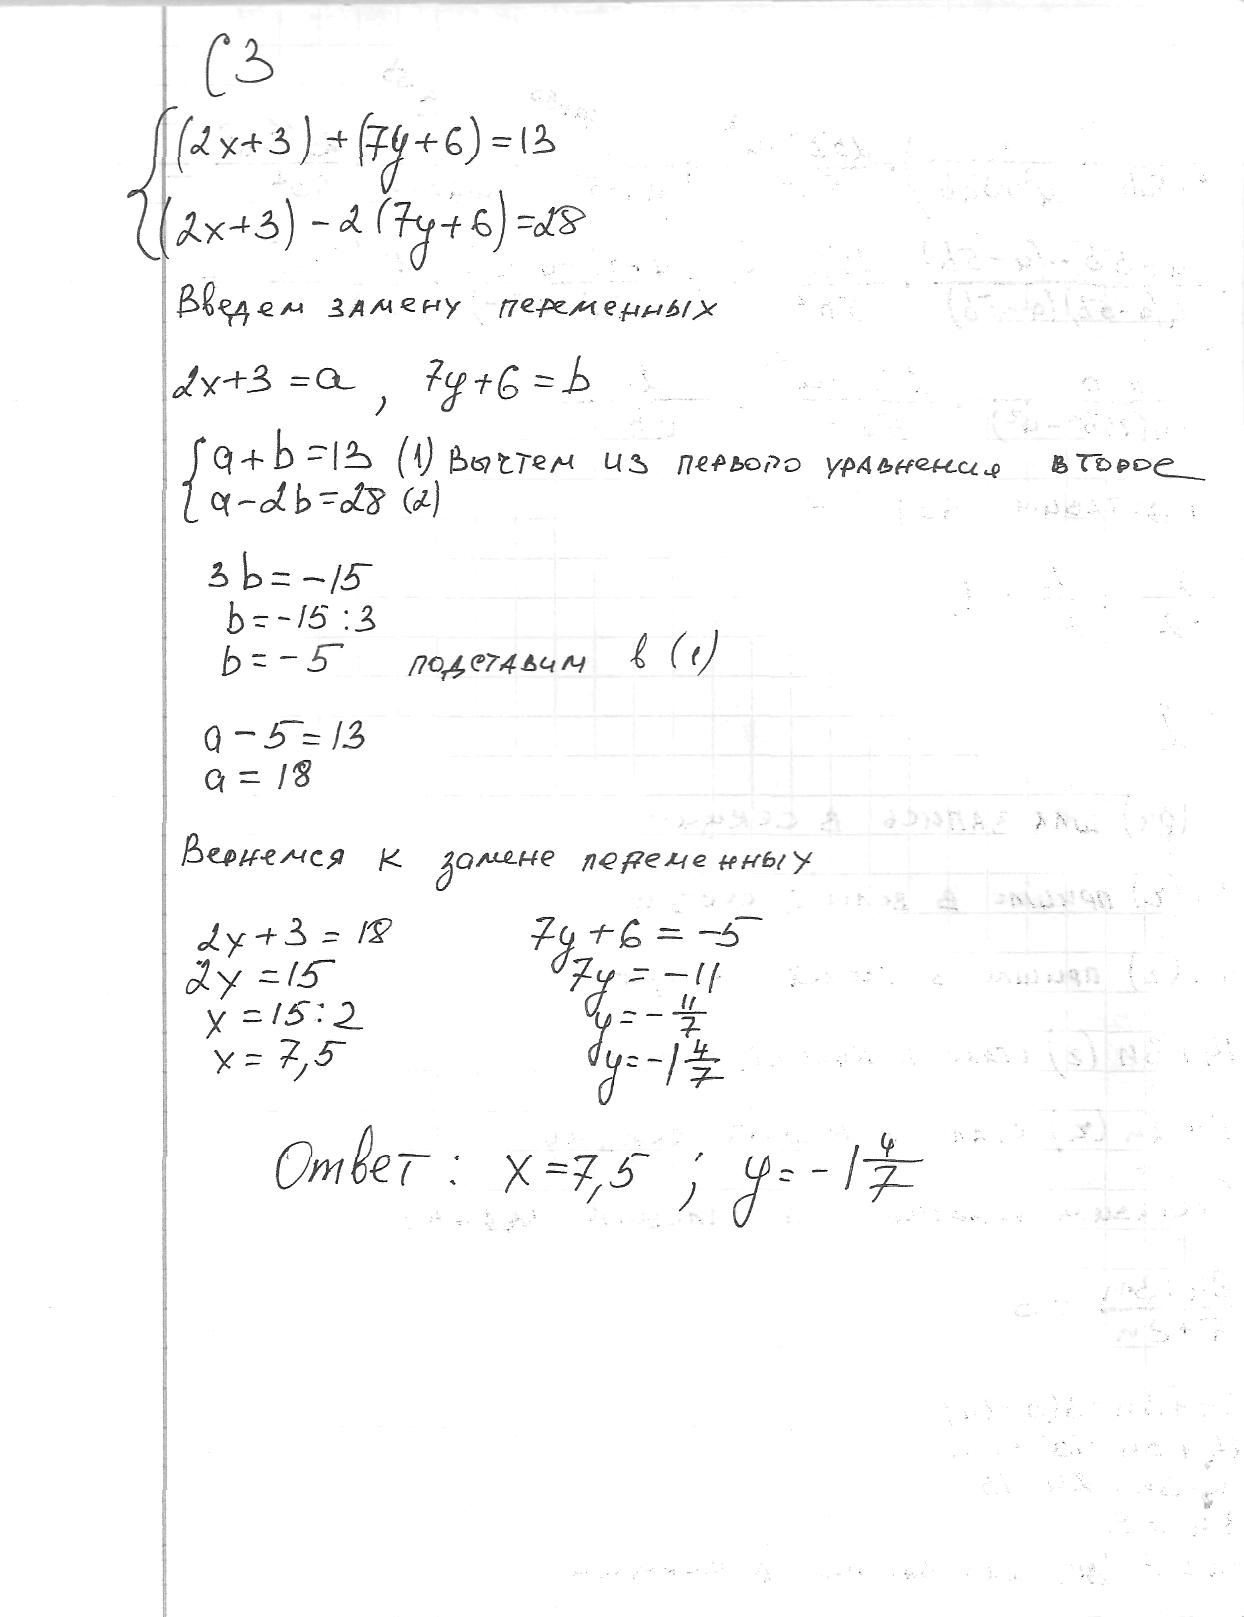 С3
(2x+3)+(7y+6)=13
(2x+3)-2(7y+6)=28
Введем замену переменных
2x+3=a, 7y+6=b
a+b=13 (1) Вычтем из первого уравнения второе
a-2b=28 (2)
3b=-15
b=-15:3
b=-5 подставим в (1)
a-5=13
a=18
Вернемся к замене переменных
2x+3=18 7y+6=-5
2x=15 7y=-11
x=15:2 y=-11/7
x=7,5 y=-1 4/7
Ответ: x=7,5; y=-1 4/7